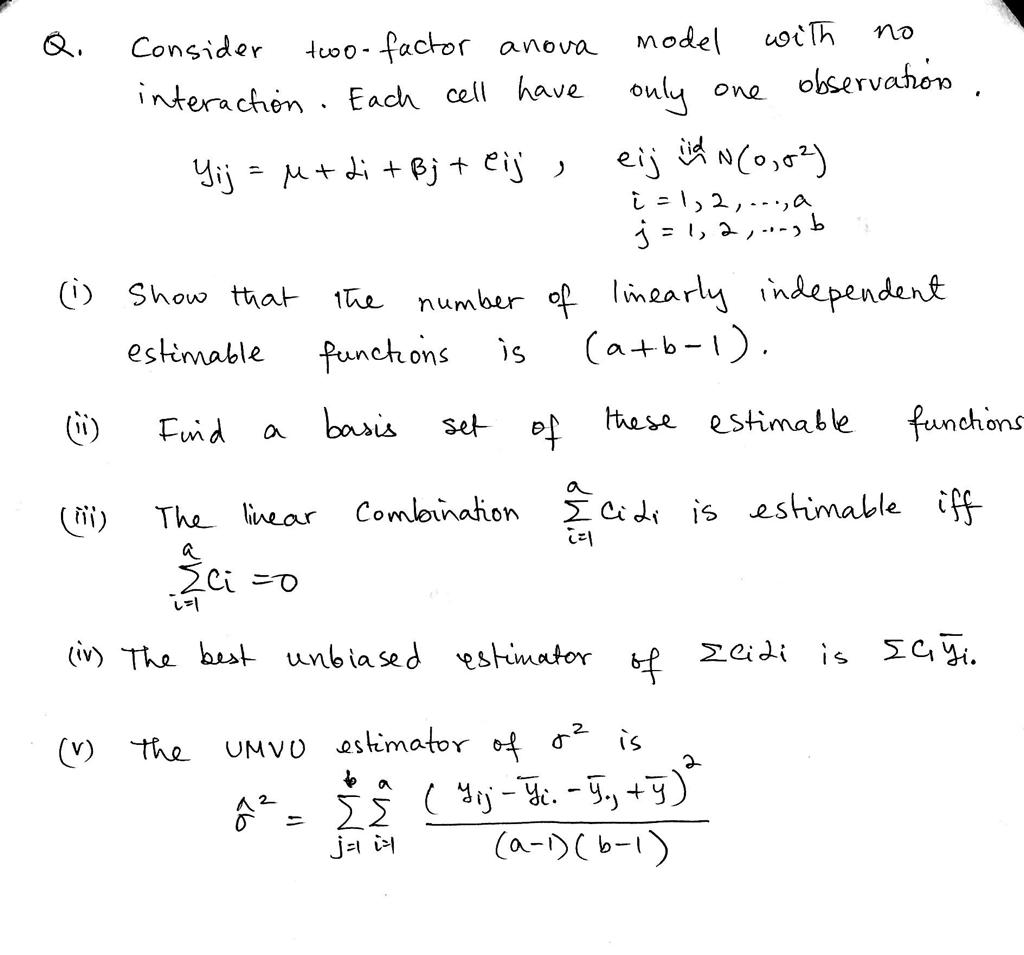 Q. Consider two-factor anova model with no
interaction. Each cell have only one observation.
yij = μ + αi + βj + eij , eij iid~ N(0,σ²)
i = 1,2,...,a
j = 1,2,...,b
(i) Show that the number of linearly independent
estimable functions is (a+b-1).
(ii) Find a basis set of these estimable functions
(iii) The linear Combination Σ_{i=1}^{a} Ci αi is estimable iff
Σ_{i=1}^{a} Ci = 0
(iv) The best unbiased estimator of Σ Ci αi is Σ Ci ȳi.
(v) The UMVU estimator of σ² is
σ̂² = Σ_{j=1}^{b} Σ_{i=1}^{a} (yij - ȳi. - ȳ.j + ȳ)² / (a-1)(b-1)